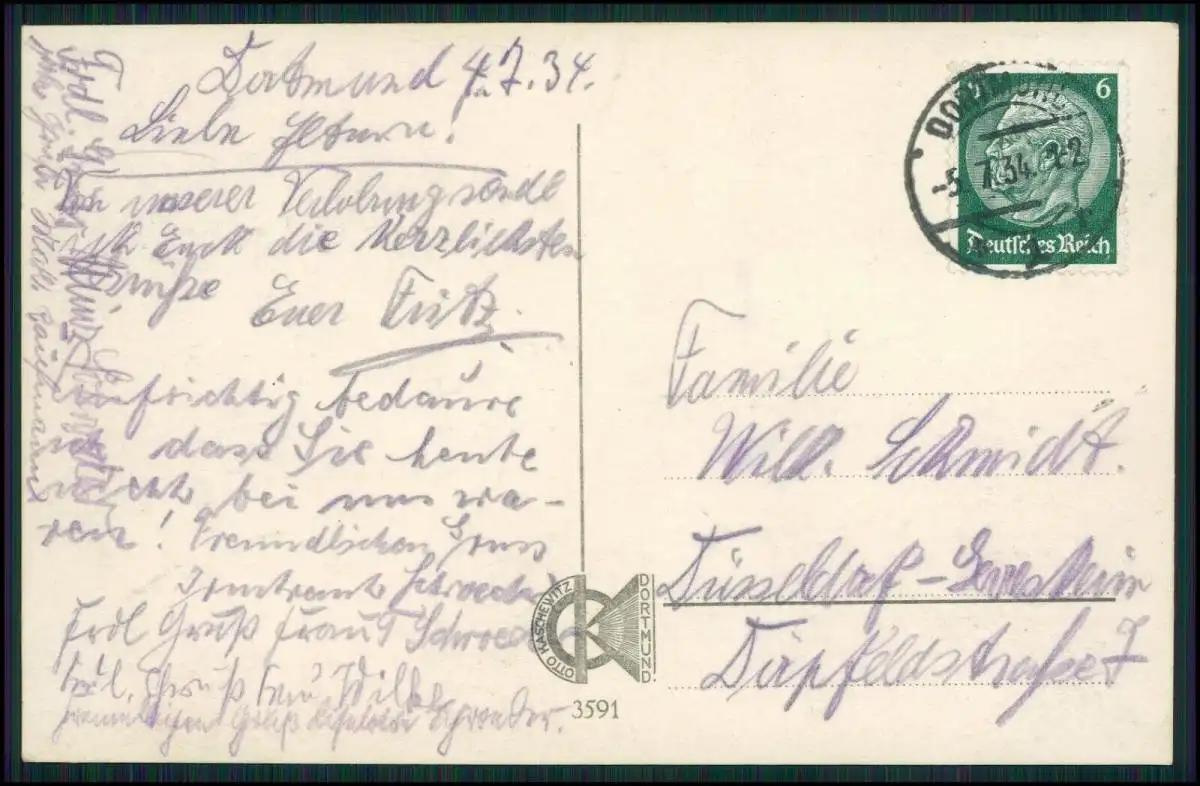 Dortmund 4.7.34.
Liebe Eltern!
Von unserer Verlobung sende
ich Euch die herzlichsten
Grüße
Euer Fritz.
Aufrichtig bedaure
ich dass Sie heute
nicht bei uns wa-
ren! Freundlichen Gruss
Irmtraut Schroeder
Frdl Gruß Frau Schroeder
frdl. Gruß Frau Wilke
freundlichen Gruß Schroeder.
Frdl. Gruß
DORTMUND
-5.7.34.
6
Deutsches Reich
Familie
Wilh. Schmidt.
Düsseldorf-Gerresheim
Dörpfeldstraße 7
OTTO KASCHEWITZ
DORTMUND
3591